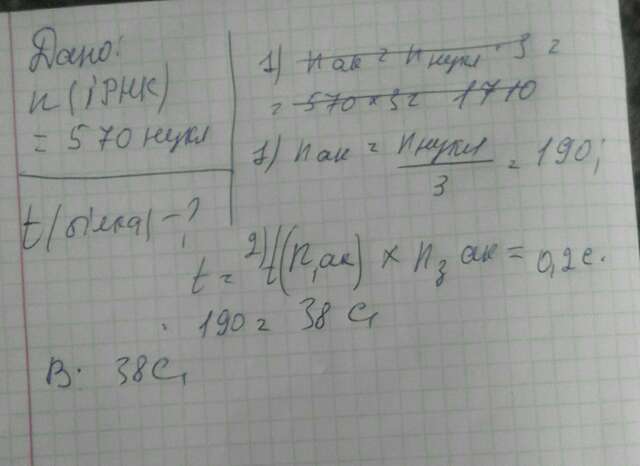 Дано:
n (іРНК)
= 570 нукл
t(білка) - ?
1) n ак = n нукл · 3 =
= 570 × 3 = 1710
1) n ак = n нукл / 3 = 190;
2) t = t(n₁ак) × n₃ ак = 0,2 с.
· 190 = 38 с,
В: 38 с,